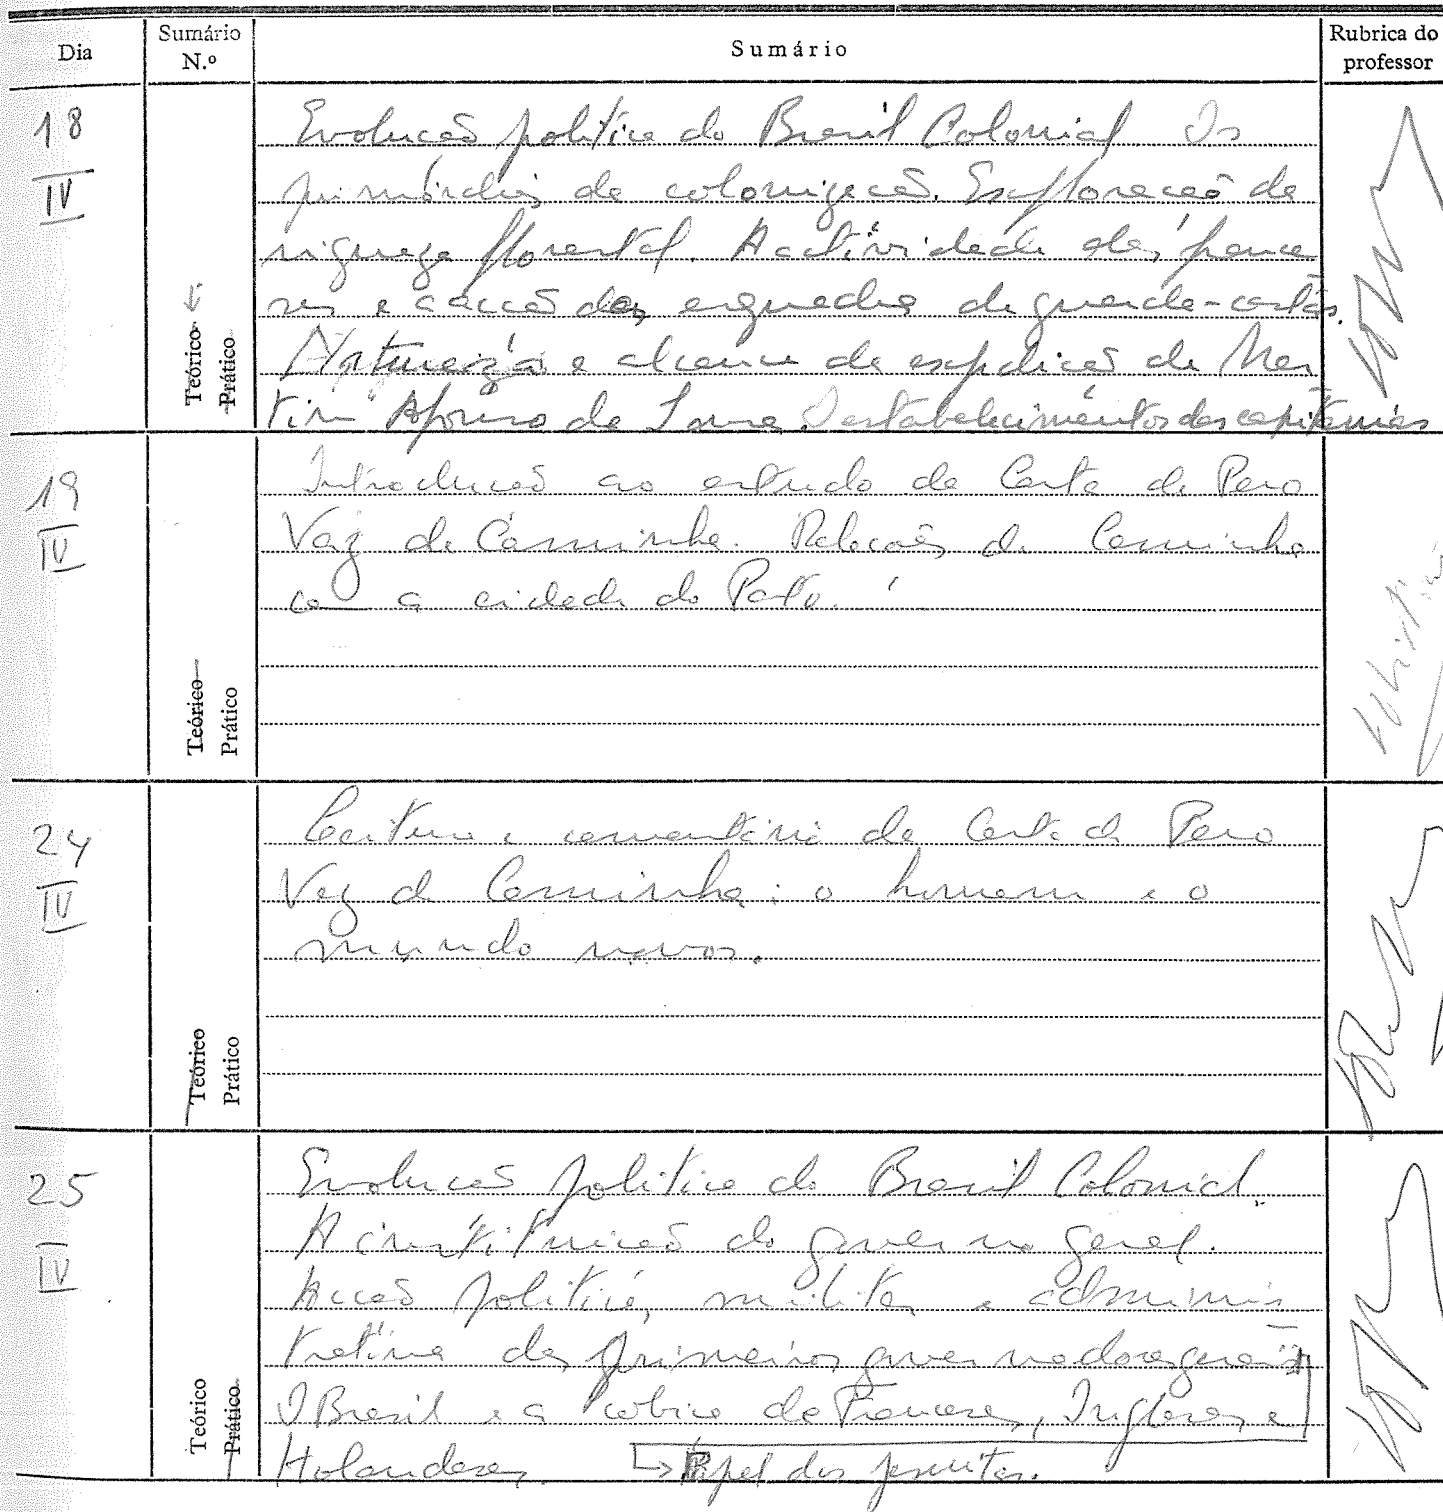 Dia
Sumário N.º
Sumário
Rubrica do professor
18
IV
Teórico
Prático
Evolução política do Brasil Colonial. Os
primórdios da colonização. Exploração da
riqueza florestal. A actividade dos france
ses e a acção das esquadras de guarda-costas.
Natureza e alcance da expedição de Mar
tim Afonso de Sousa. O estabelecimento das capitanias
19
IV
Teórico
Prático
Introdução ao estudo da Carta de Pero
Vaz de Caminha. Relações de Caminha
com a cidade do Porto.
24
IV
Teórico
Prático
Leitura e comentário da Carta de Pero
Vaz de Caminha: o homem e o
mundo novos.
25
IV
Teórico
Prático
Evolução política do Brasil Colonial.
A instituição do governo geral.
Acção política, militar e adminis
trativa dos primeiros governadores gerais
O Brasil e a cobiça de Franceses, Ingleses e
Holandeses. Papel dos jesuítas.